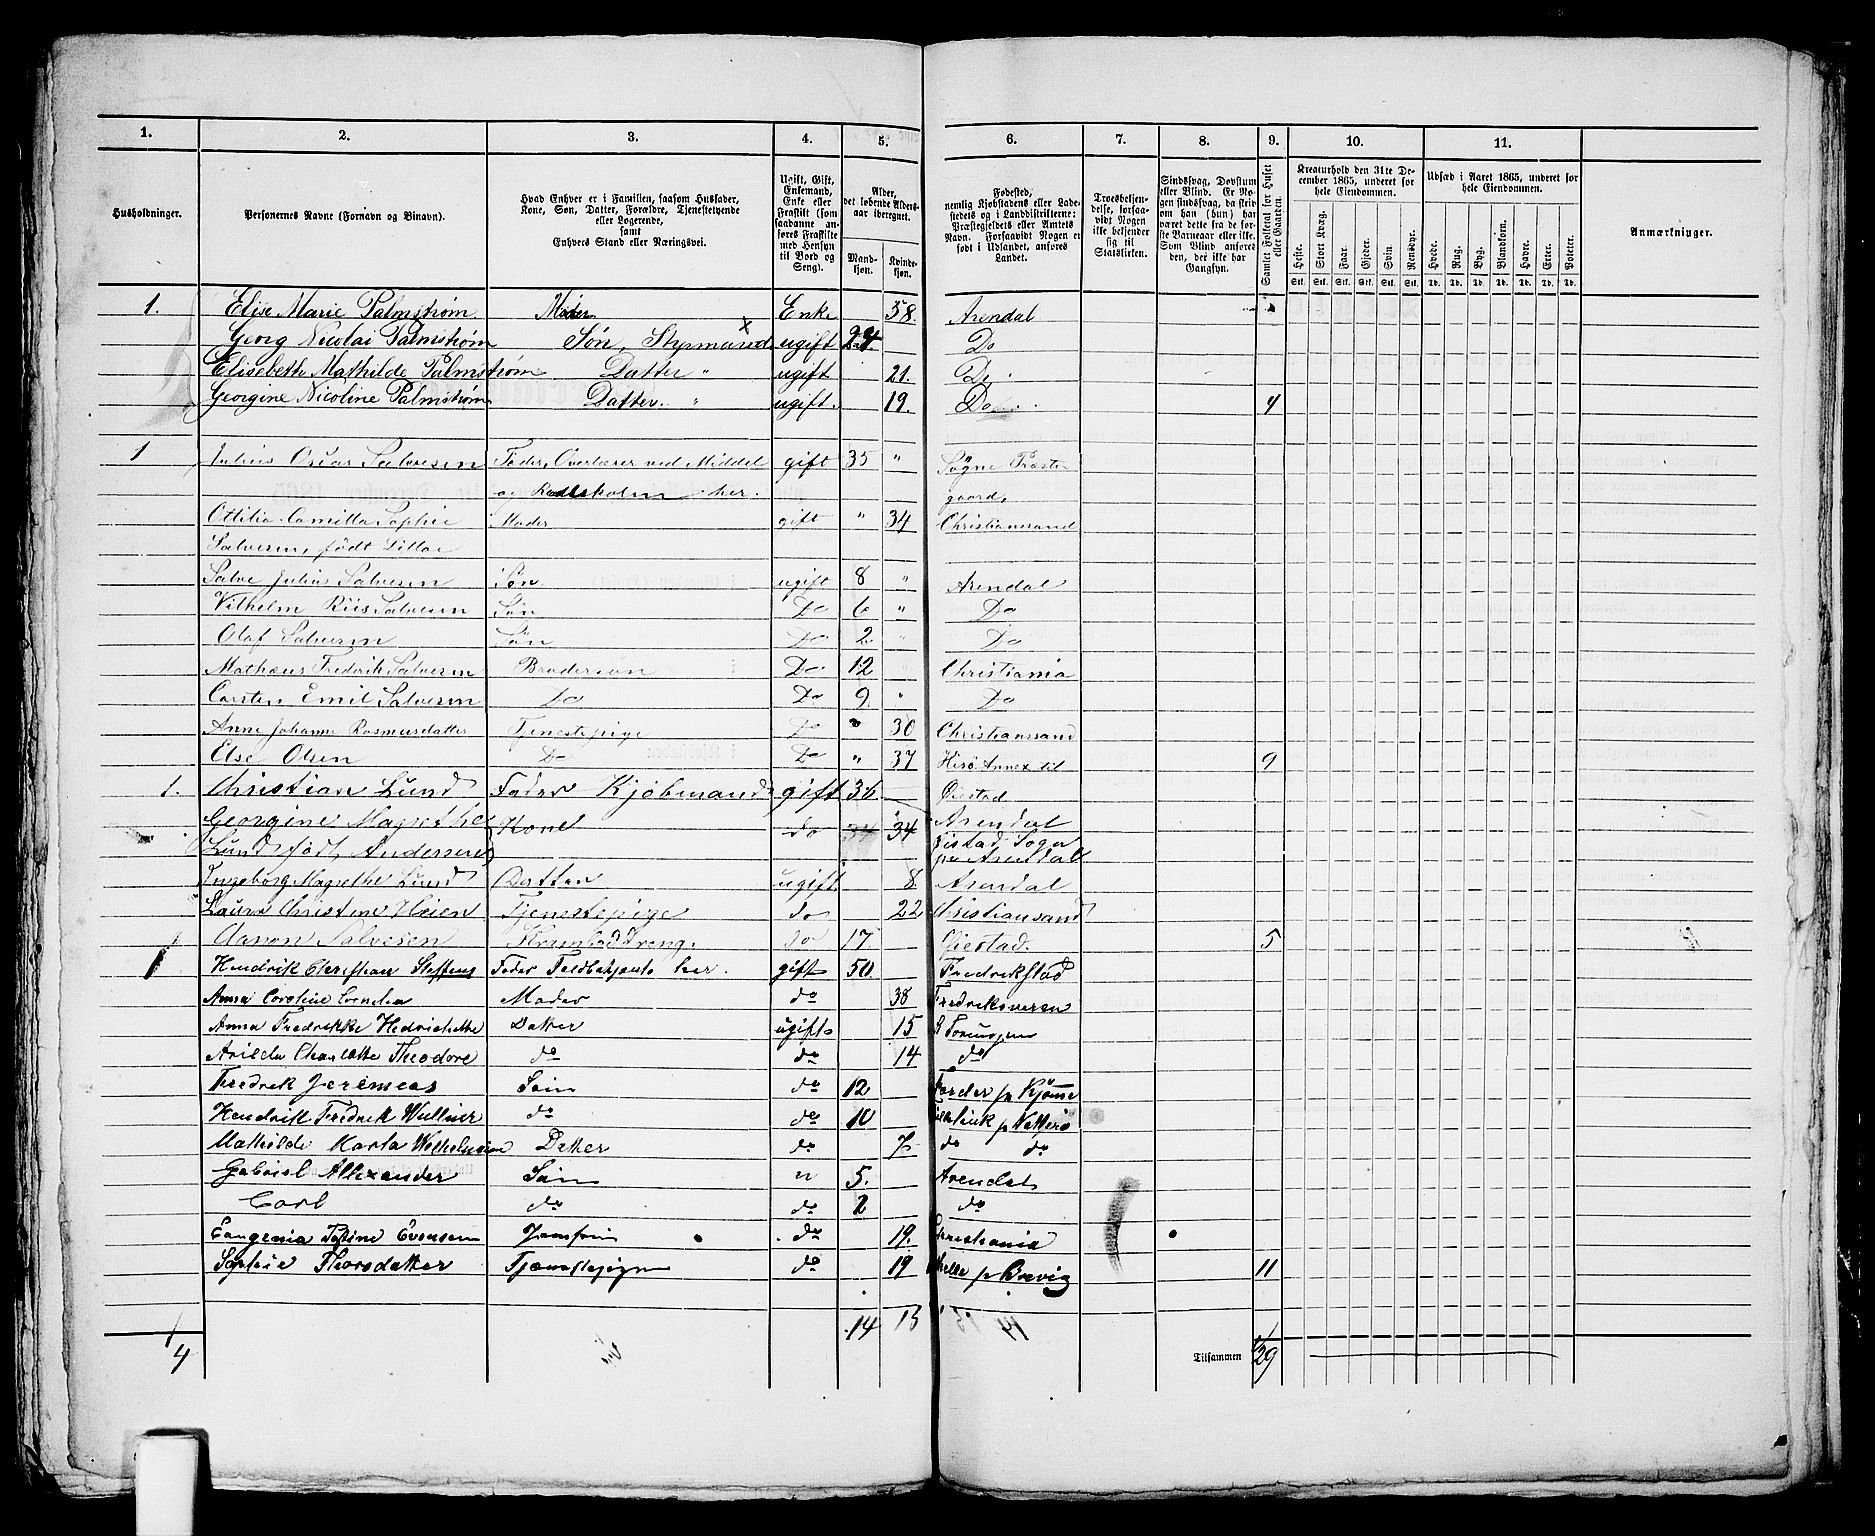 1. 2. 3. 4. 5. 6. 7. 8. 9. 10. 11.
Husholdninger.
Personernes Navne (Fornavn og Binavn).
Hvad Enhver er i Familien, saasom Husfader, Kone, Søn, Datter, Forældre, Tjenestetyende eller Logerende, samt Enhvers Stand eller Næringsvei.
Ugift, Gift, Enkemand, Enke eller Fraskilt (som saadanne anføres Fraskilte med Hensyn til Bord og Seng).
Alder, det løbende Alders-aar iberegnet.
Mand-kjøn. Kvinde-kjøn.
Fødested, nemlig Kjøbstadens eller Ladestedets og i Landdistrikterne: Præstegjeldets eller Amtets Navn. Forsaavidt Nogen er født i Udlandet, anføres Landet.
Troesbekjendelse, forsaavidt Nogen ikke bekjender sig til Statskirken.
Sindssvag, Døvstum eller Blind. Er Nogen sindssvag, da skrives om han (hun) har været dette fra de første Barneaar eller ikke. Som Blind anføres den, der ikke har Gangsyn.
Samlet Folketal for Huset eller Gaarden.
Kreaturhold den 31te December 1865, underet for hele Eiendommen.
Heste. Stort Kvæg. Faar. Gjeder. Svin Rensdyr.
Udsæd i Aaret 1865, underet for hele Eiendommen.
Hvede. Rug. Byg. Blandkorn. Havre. Erter. Poteter.
Anmærkninger.
1. Elise Marie Palmstrøm Moder Enke 58. Arendal
Georg Nicolai Palmstrøm Søn, Styrmand ugift 24. Do
Elisebeth Mathilde Palmstrøm Datter " ugift 21. Do
Georgine Nicoline Palmstrøm Datter. " ugift. 19. Do 4
1 Julius Oscar Salvesen Fader, Overlærer ved Middel gift 35 " Søgne Præste
og Realskolen her. gaard,
Ottilia Camilla Sophie Moder gift " 34 Christianssand
Salvesen, født
Salve Julius Salvesen Søn ugift 8 " Arendal
Vilhelm Riis Salvesen Søn Do 6 " Do
Olaf Salvesen Søn Do 2 " Do
Mathæus Fredrik Salvesen Brodersøn Do 12 " Christiania
Carsten Emil Salvesen Do Do 9. " Do
Anne Johanne Rasmusdatter Tjenestepige Do " 30 Christianssand
Else Olsen Do Do " 37 Hisø Annex til 9
1. Christian Lund Fader Kjøbmand gift 36. Øiestad
Georgine Magrethe Kone do 34 34 Arendal
Lund født Andersen Øiestad Sogn pr Arendal
Ingeborg Magrethe Lund Datter ugift 8 Arendal
Laura Christine Heien Tjenestepige do 22 Christiansand
Aanon Salvesen Kramboddreng. do 17. Øiestad. 5
1 Hendrik Christian Steffens Fader Toldbetjent her. gift 50. Fredrikstad
Anna Caroline Cornelia Moder do 38 Fredriksværen
Anna Fredrikke Hedrichette Datter ugift 15
Arilda Charlotte Theodore do do 14 do
Fredrik Jeremeas Søn do 12 Færder pr Kjømme
Hendrik Fredrik do do 10
Mathilde Karla Datter do 7 do do
Gabriel Allexander Søn " 5. Arendal
Carl do do 2 do
Eungenia Evensen Jomfru do 19. Christiania
Sophie Thorsdatter Tjenestepige do 19 Helle pr Brevig 11
14 15
4 Tilsammen 29